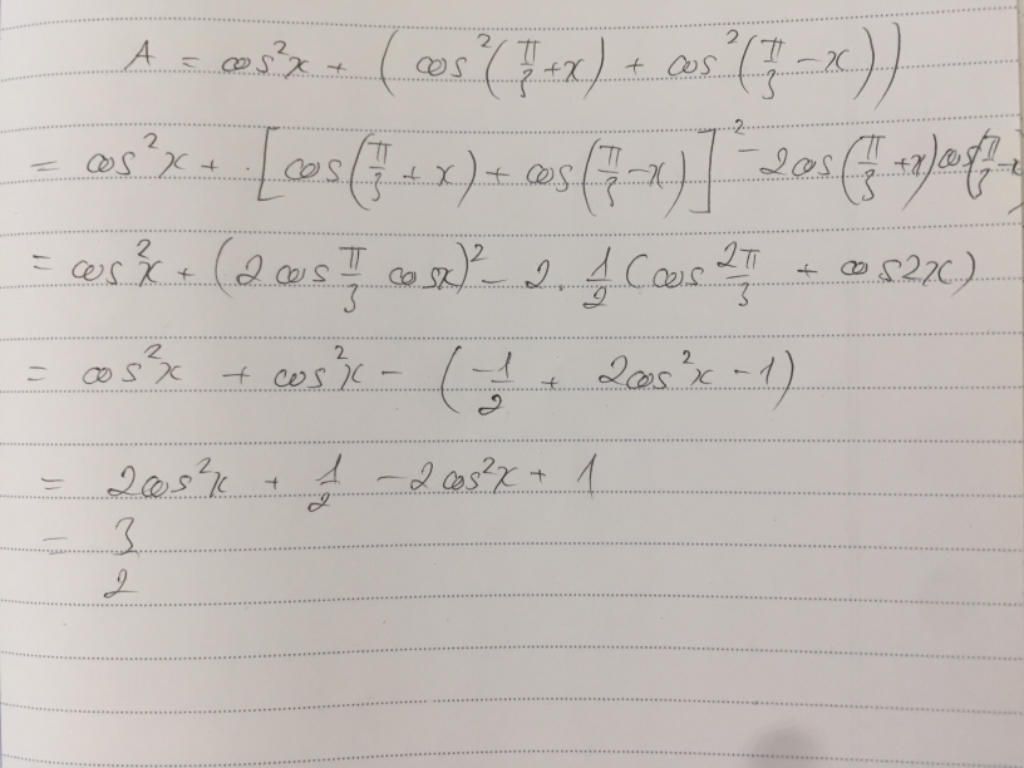 A = cos²x + (cos²(π/3 + x) + cos²(π/3 − x))
= cos²x + [cos(π/3 + x) + cos(π/3 − x)]² − 2cos(π/3 + x)cos(π/3 − x)
= cos²x + (2cos π/3 cosx)² − 2 . 1/2 (cos 2π/3 + cos2x)
= cos²x + cos²x − (−1/2 + 2cos²x − 1)
= 2cos²x + 1/2 − 2cos²x + 1
= 3/2